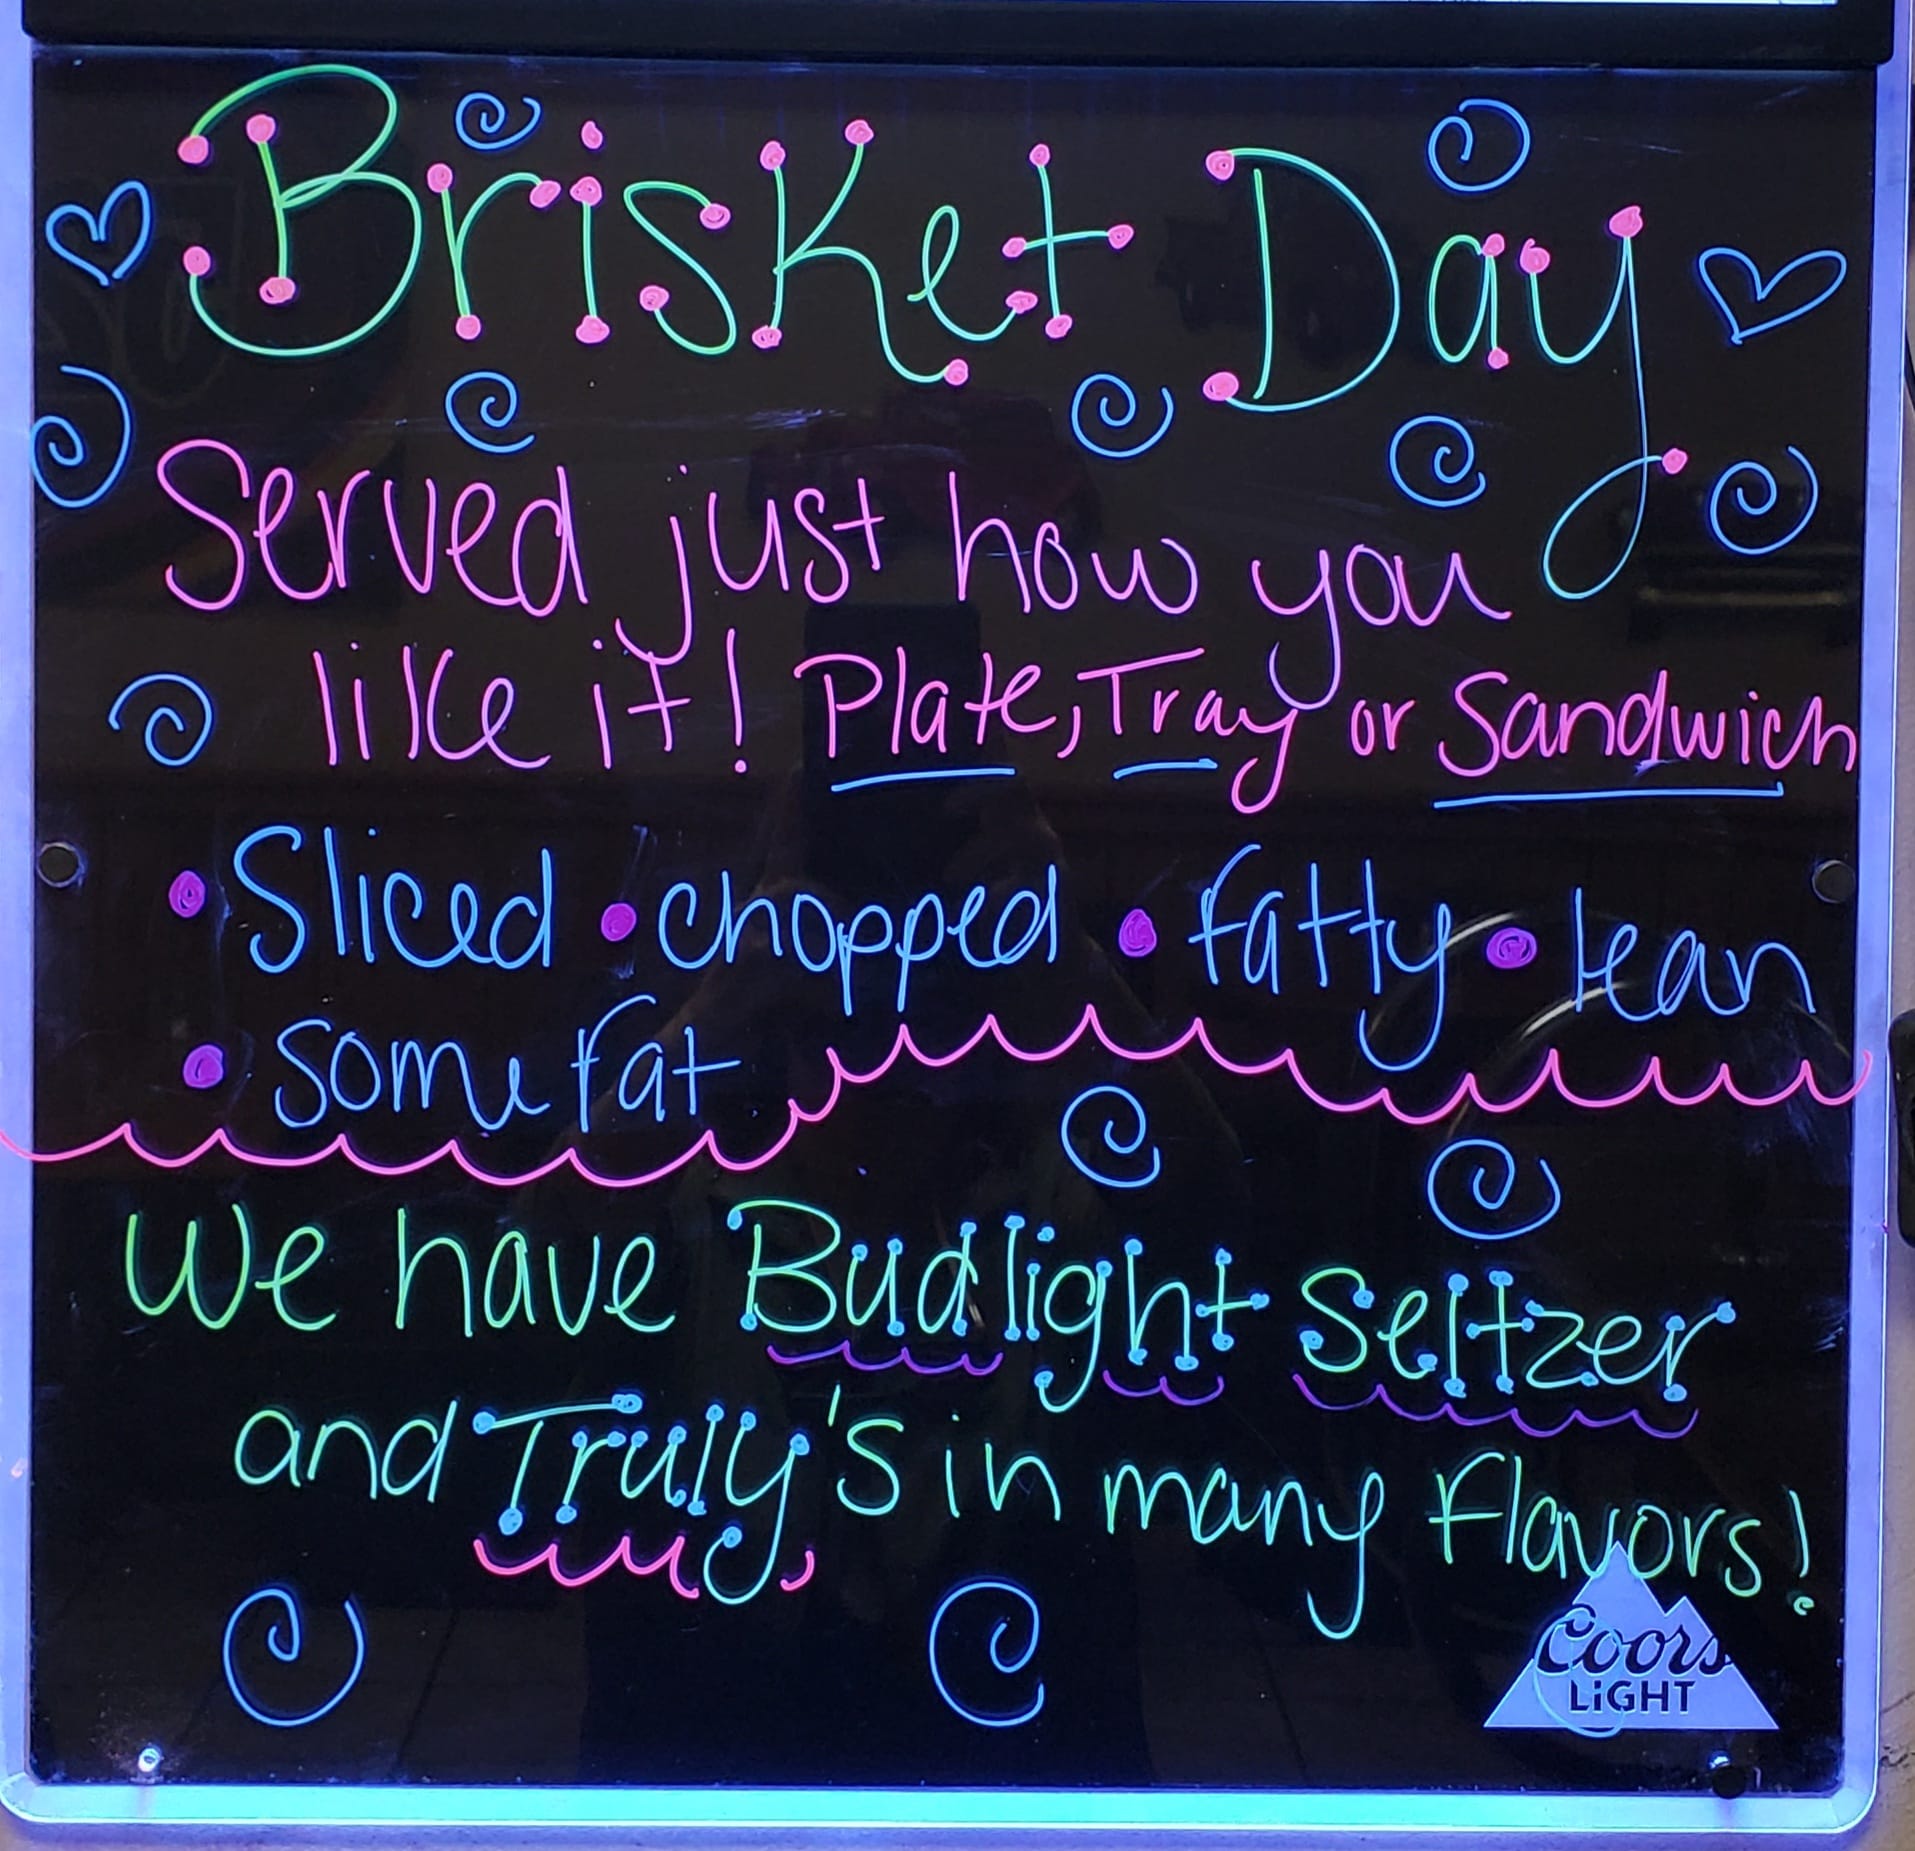 Brisket Day
Served just how you
like it! Plate, Tray or Sandwich
• Sliced • chopped • fatty • lean
• some fat
We have Budlight Seltzer
and Truly's in many flavors!
Coors
LiGHT